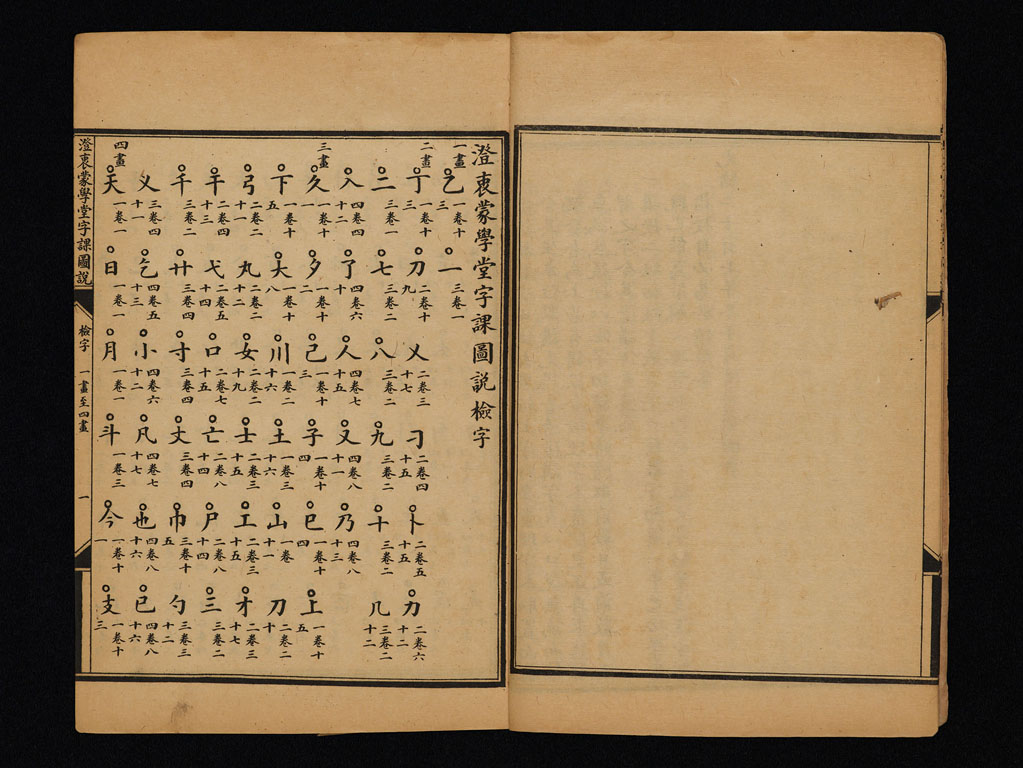 澄衷蒙學堂字課圖說檢字
一畫 乙 一卷十三 一 三卷一
二畫 丁 一卷十三 刀 二卷十九 乂 二卷三十七 刁 二卷四十五 卜 二卷五十五 力 二卷六十二
二 三卷一 七 三卷二 八 三卷二 九 三卷二 十 三卷二 几 三卷二十二
入 四卷四十二 了 四卷六十 人 四卷七十五 又 四卷八十一 乃 四卷八十三
三畫 久 一卷十一 夕 一卷十二 己 一卷十三 子 一卷十四 巳 一卷十四 上 一卷十五
下 一卷十五 大 一卷十八 川 一卷二十六 土 一卷三十六 山 一卷十一 刀 二卷二十
弓 二卷二十一 丸 二卷二十二 女 二卷二十九 士 二卷三十五 工 二卷三十五 才 二卷三十七
干 二卷四十三 弋 二卷五十四 口 二卷七十五 亡 二卷八十四 尸 二卷八十四 三 三卷二
千 三卷二 廾 三卷四 寸 三卷四 丈 三卷四 巾 三卷十五 勺 三卷三十二
叉 三卷四十一 乞 四卷五十三 小 四卷六十二 凡 四卷七十七 也 四卷八十六 已 四卷八十六
四畫 天 一卷一 日 一卷一 月 一卷一 斗 一卷三 今 一卷十一 支 一卷十三
澄衷蒙學堂字課圖說 檢字 一畫至四畫 一